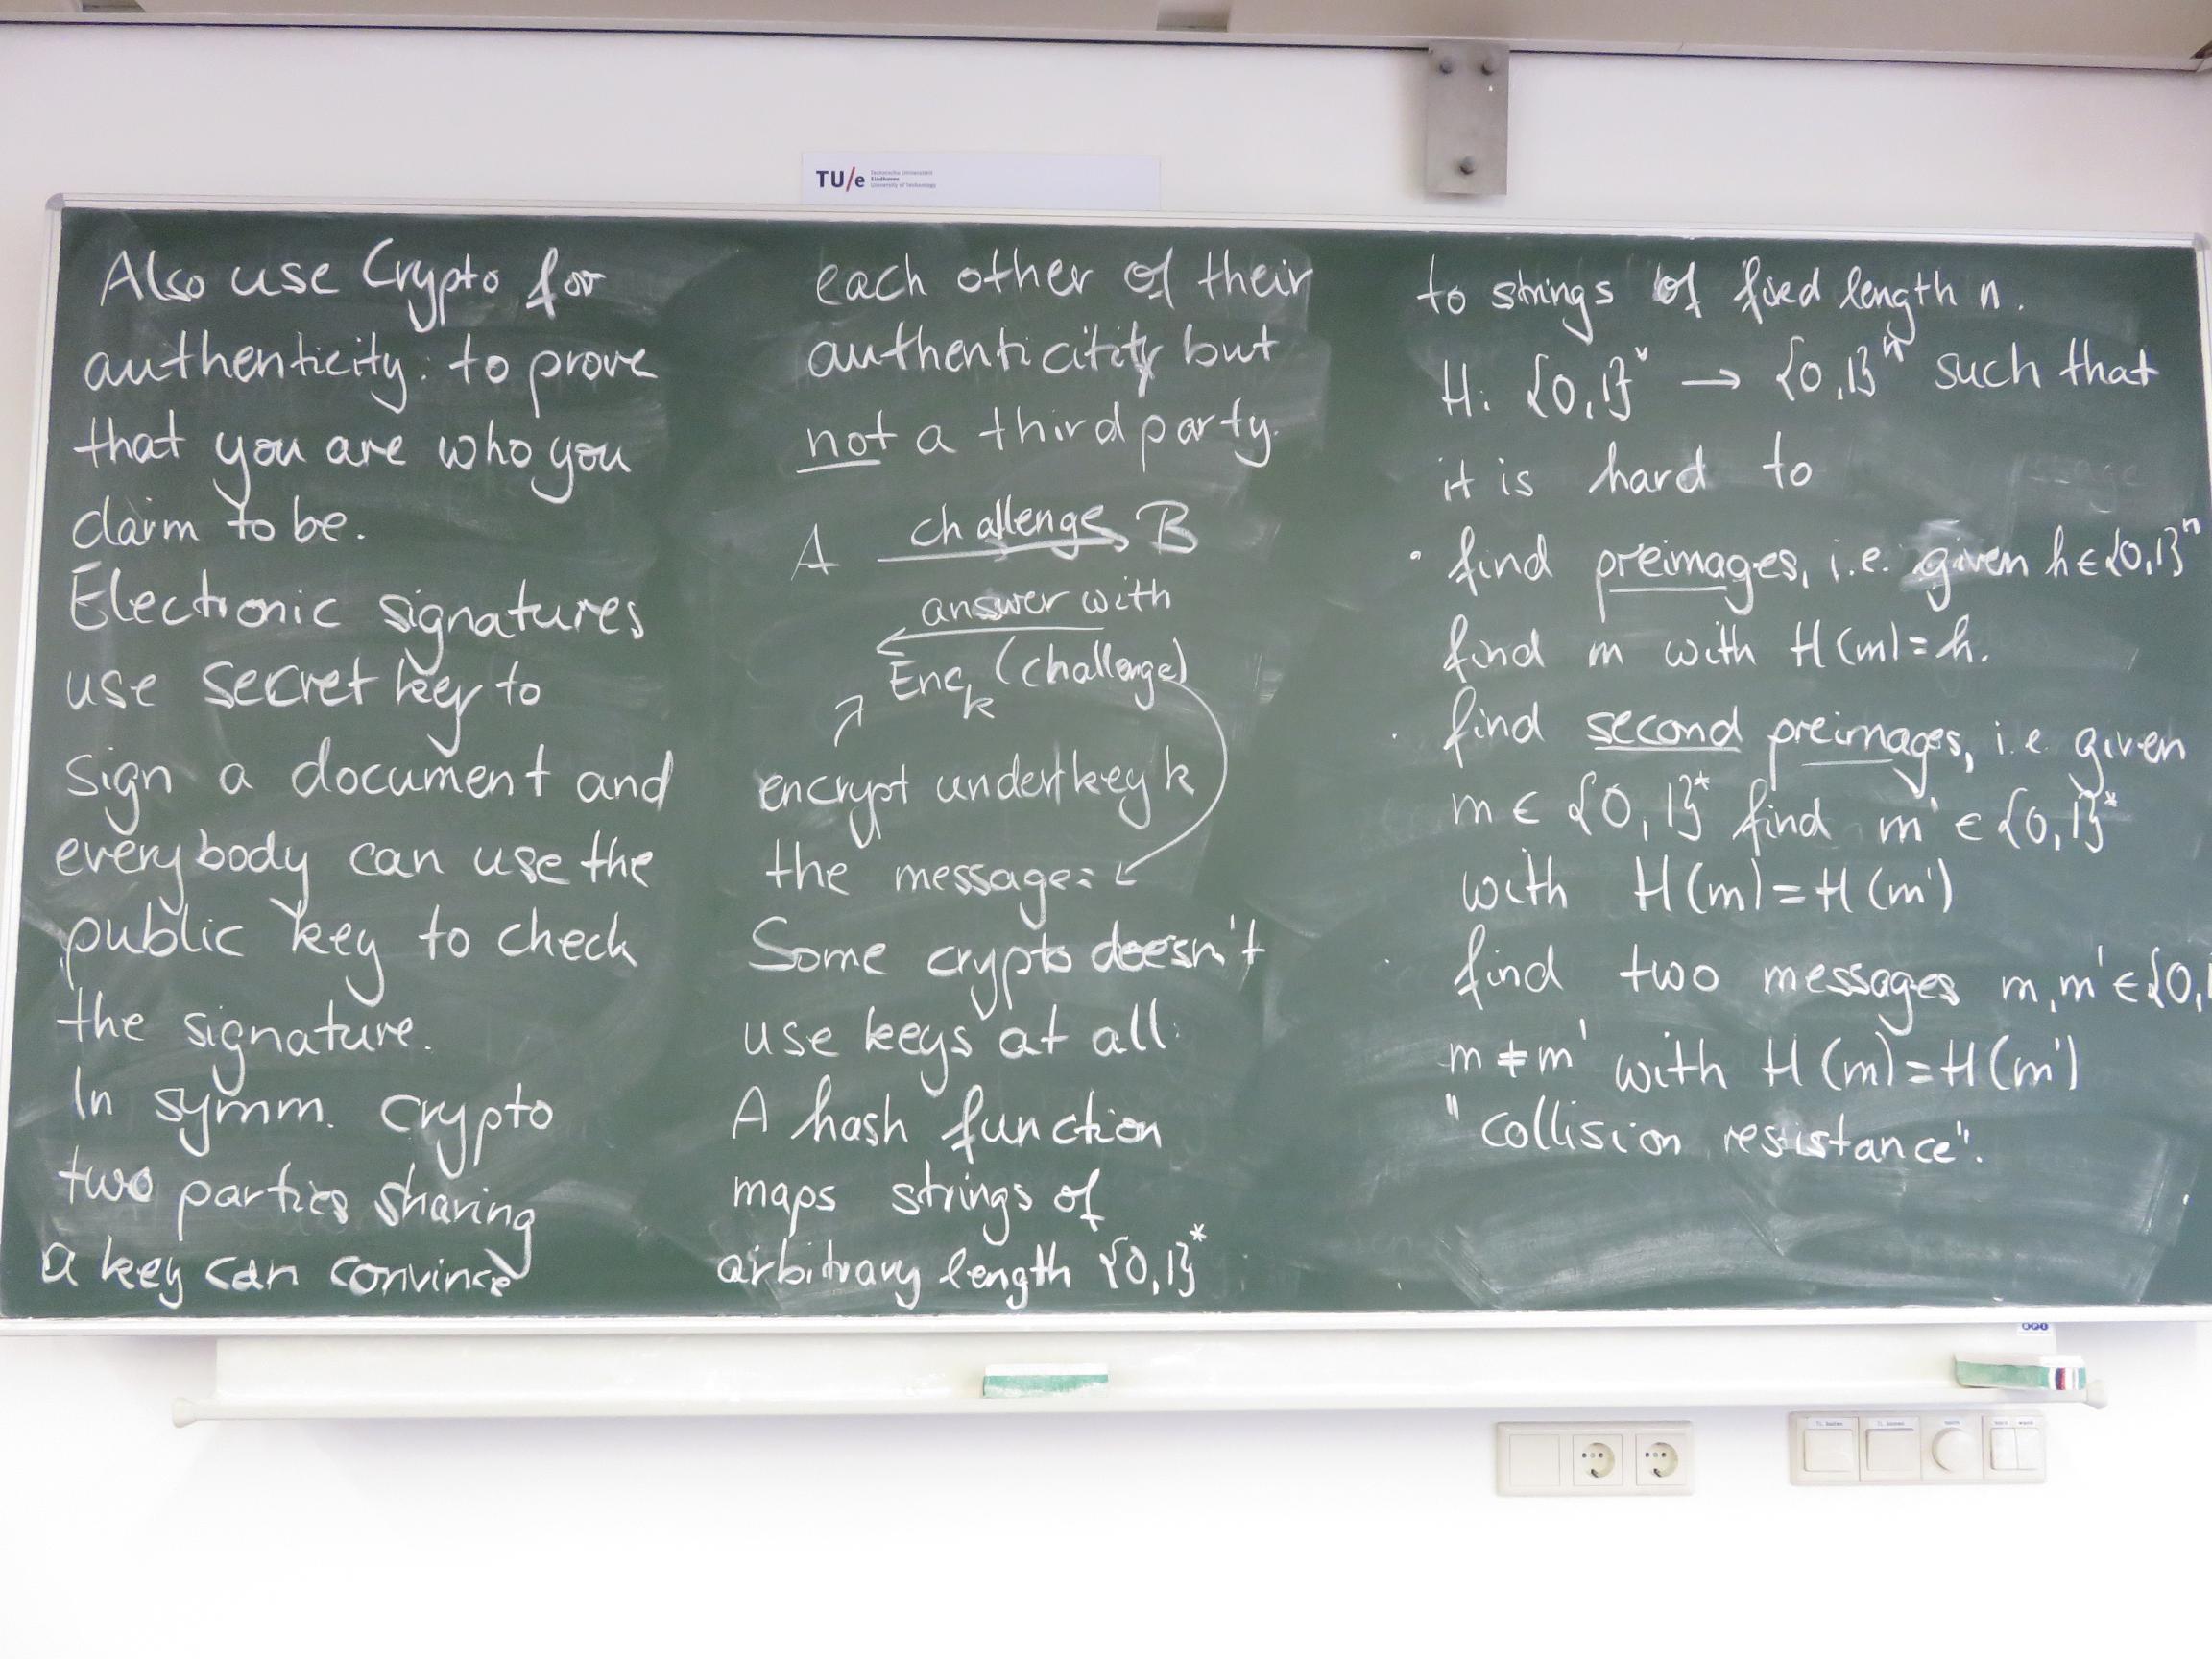 TU/e Technische Universiteit
Eindhoven
University of Technology
Also use Crypto for
authenticity: to prove
that you are who you
claim to be.
Electronic signatures
use secret key to
sign a document and
everybody can use the
public key to check
the signature.
In symm. crypto
two parties sharing
a key can convince
each other of their
authenticitity but
not a third party.
A challenge B
answer with
Enc_k (challenge)
encrypt under key k
the message:
Some crypto doesn't
use keys at all.
A hash function
maps strings of
arbitrary length {0,1}*
to strings of fixed length n.
H: {0,1}* → {0,1}^n such that
it is hard to
· find preimages, i.e. given h ∈ {0,1}^n
find m with H(m)=h.
· find second preimages, i.e. given
m ∈ {0,1}* find m' ∈ {0,1}*
with H(m)=H(m')
· find two messages m,m' ∈ {0,1
m ≠ m' with H(m)=H(m')
"collision resistance".